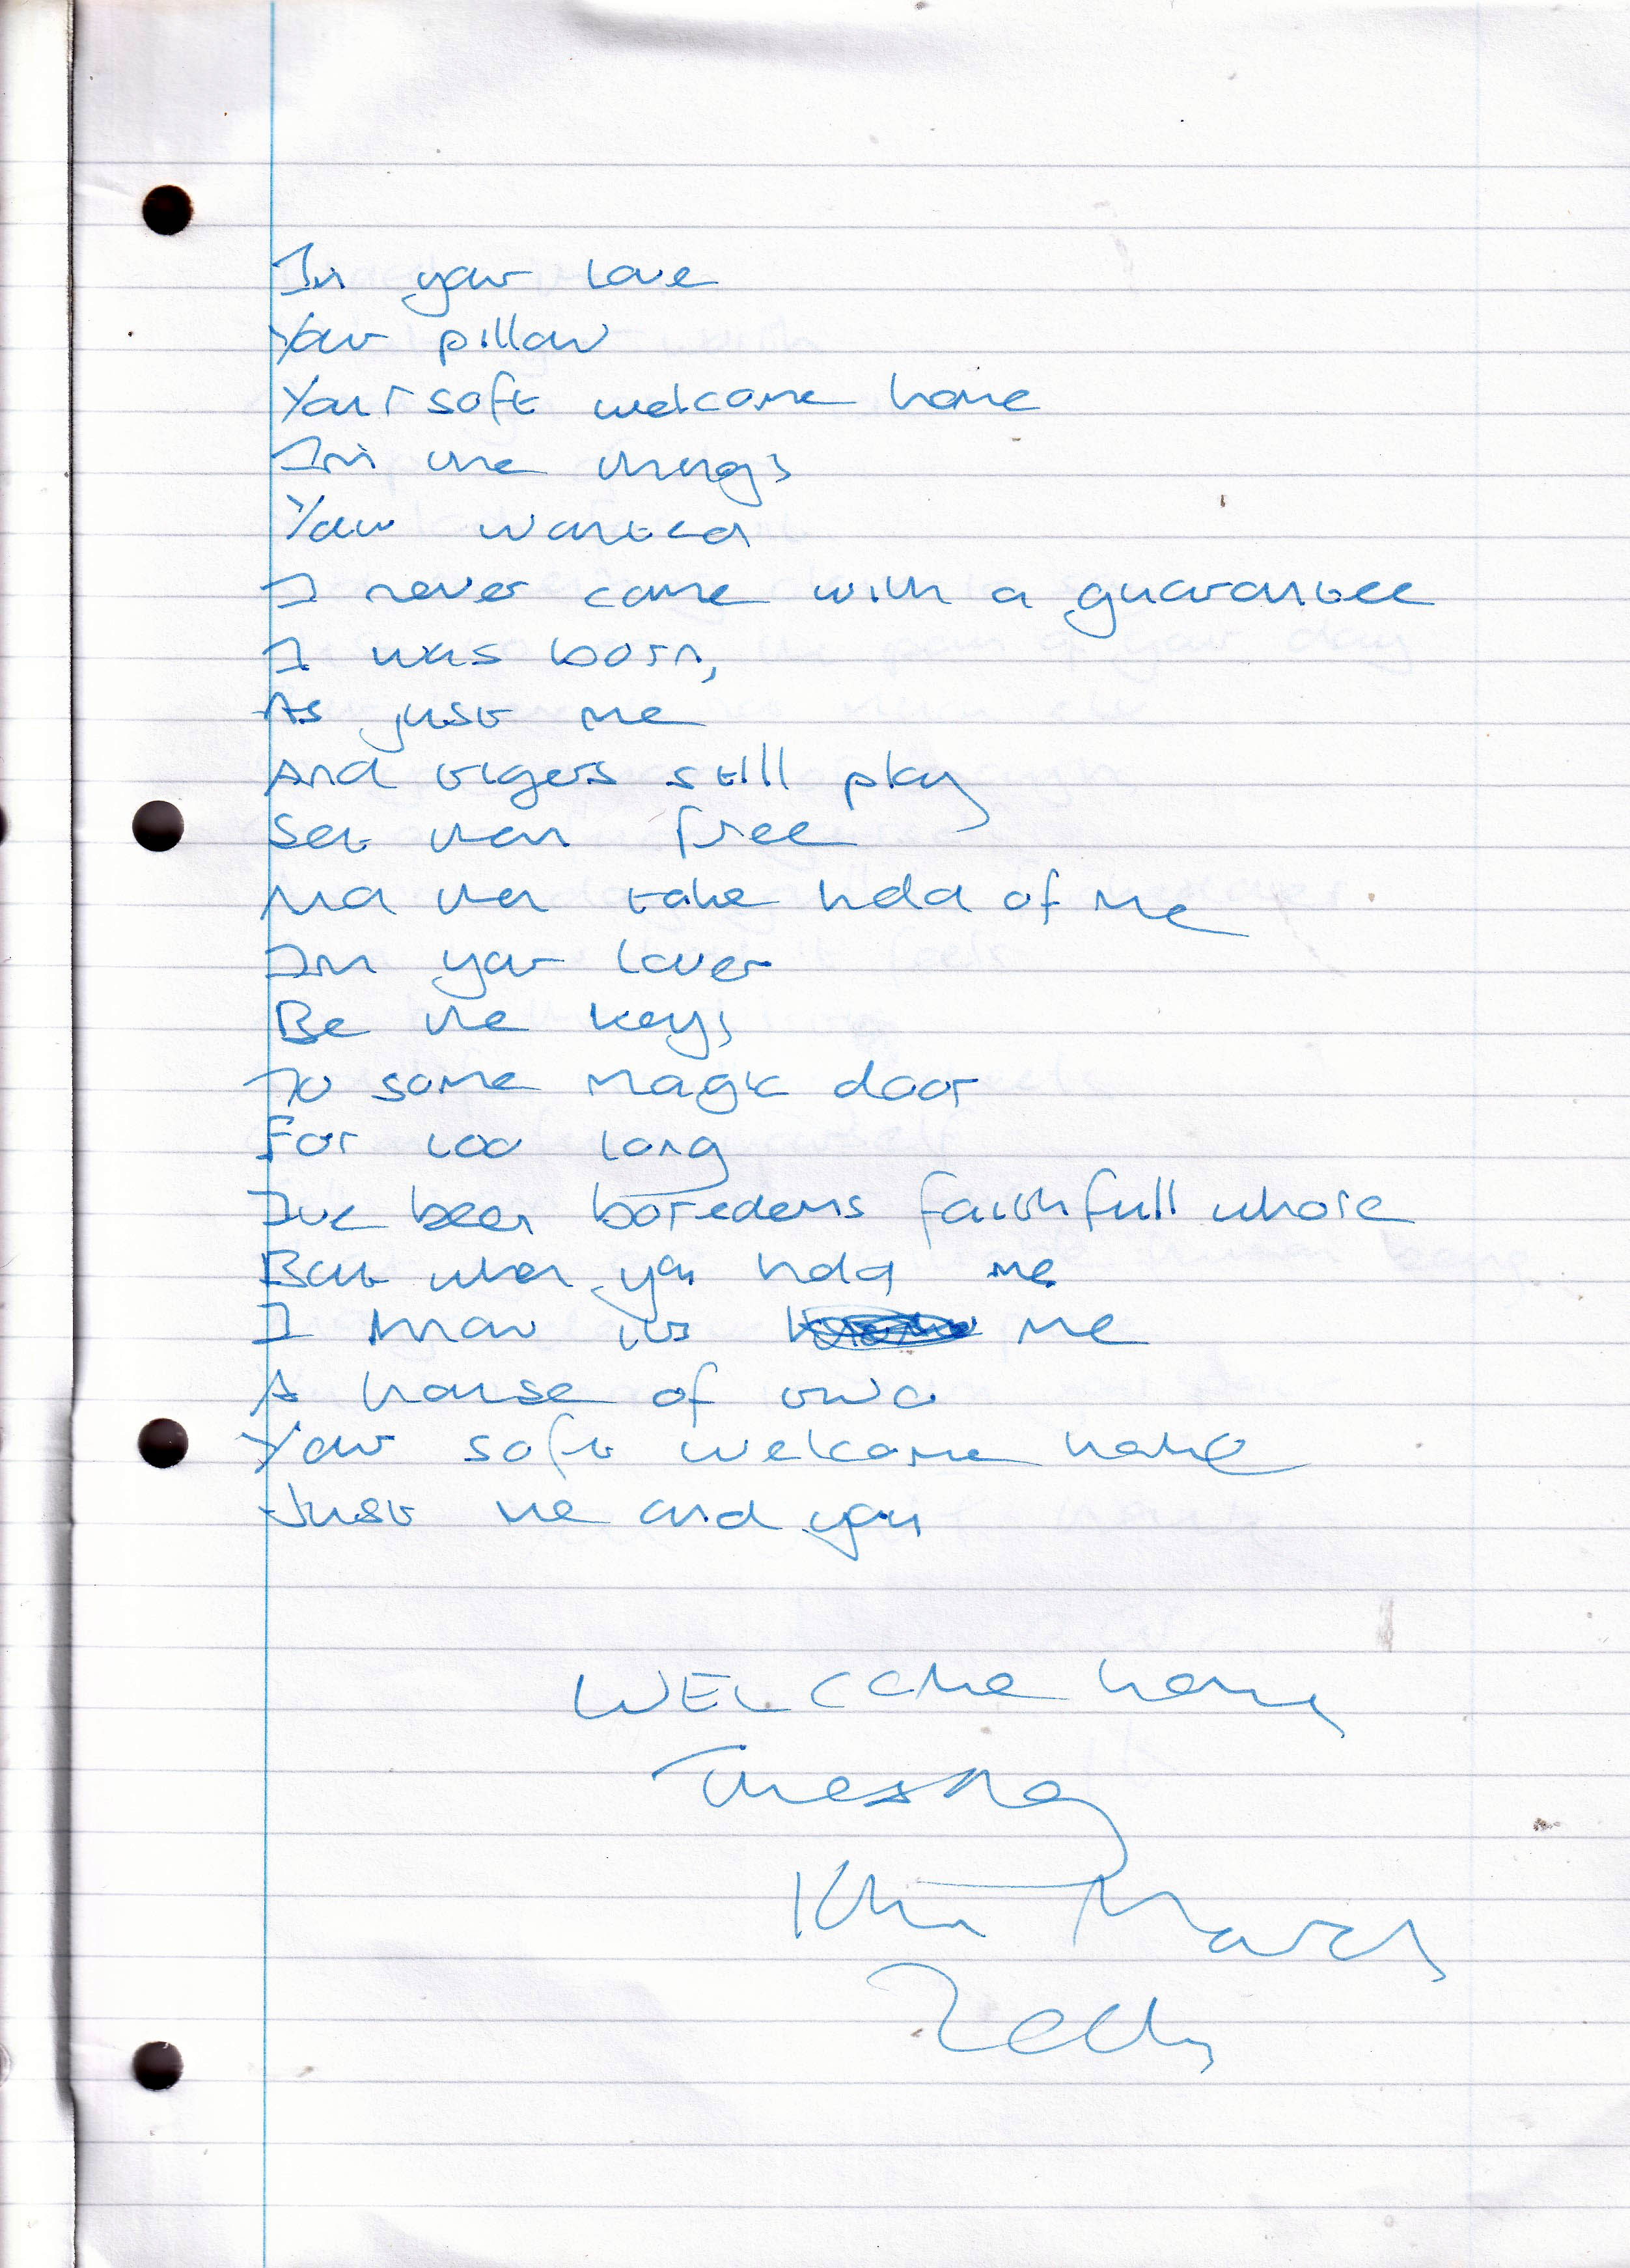 In your love
Your pillow
Your soft welcome home
Im the things
You wanted
I never came with a guarantee
I was born,
As just me
And tigers still play
Set them free
And then take hold of me
Im your lover
Be the keys
To some magic door
For too long
Ive been boredems faithfull whore
But when you hold me
I know its me
A house of two
Your soft welcome home
Just me and you
WELCOME home